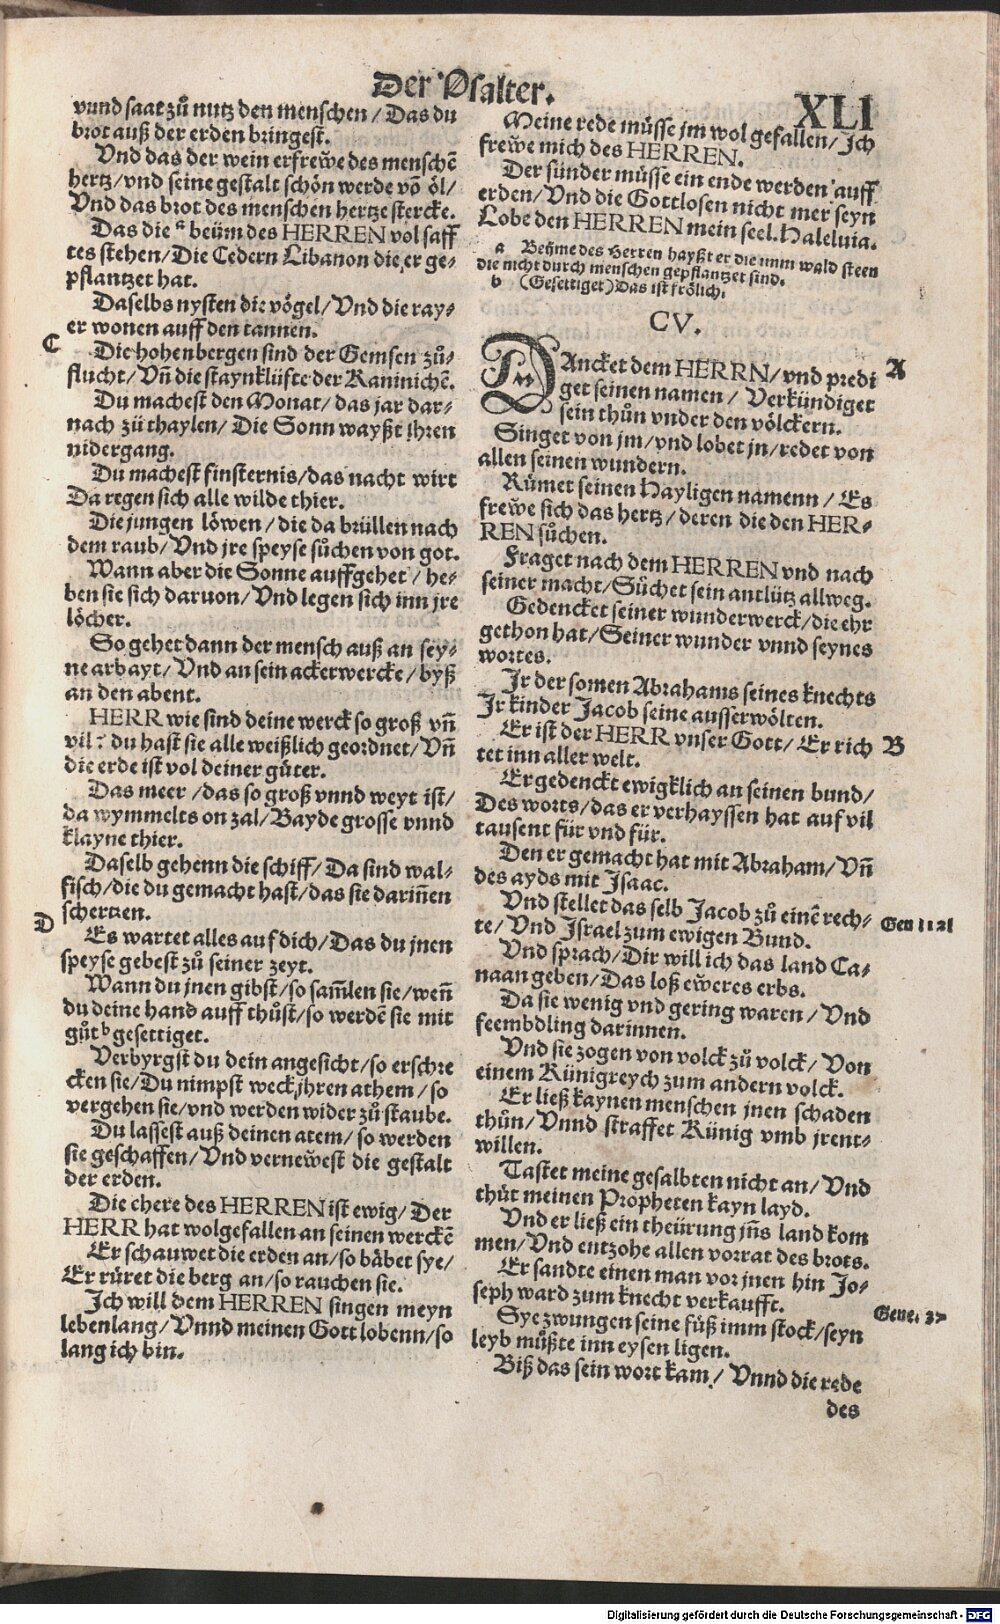 Der Psalter.
XLI
vnnd saat zů nutz den menschen / Das du
brot auß der erden bringest.
Vnd das der wein erfrewe des menschē
hertz/vnd seine gestalt schön werde vō öl/
Vnd das brot des menschen hertze stercke.
Das die a beüm des HERREN vol saff
tes stehen/Die Cedern Libanon die er ge-
pflantzet hat.
Daselbs nysten die vögel/Vnd die ray-
er wonen auff den tannen.
C
Die hohen bergen sind der Gemsen zů-
flucht/Vñ die staynklüfte der Kaninichē.
Du machest den Monat/das jar dar-
nach zü thaylen/ Die Sonn wayßt jhren
nidergang.
Du machest finsternis/das nacht wirt
Da regen sich alle wilde thier.
Die jungen löwen/die da brüllen nach
dem raub/Vnd jre speyse sůchen von got.
Wann aber die Sonne auffgehet/ he-
ben sie sich daruon/Vnd legen sich inn jre
löcher.
So gehet dann der mensch auß an sey-
ne arbayt/Vnd an sein ackerwercke/byß
an den abent.
HERR wie sind deine werck so groß vñ
vil? du hast sie alle weißlich geordnet/Vñ
die erde ist vol deiner güter.
Das meer /das so groß vnnd weyt ist/
da wymmelts on zal/Bayde grosse vnnd
klayne thier.
Daselb gehenn die schiff/Da sind wal-
fisch/die du gemacht hast/das sie dariñen
schertzen.
D
Es wartet alles auf dich/Das du jnen
speyse gebest zů seiner zeyt.
Wann du jnen gibst/so sam̄len sie/weñ
du deine hand auff thůst/so werdē sie mit
gůt b gesettiget.
Verbyrgst du dein angesicht/so erschre
cken sie/Du nimpst weck jhren athem/so
vergehen sie/vnd werden wider zů staube.
Du lassest auß deinen atem/so werden
sie geschaffen/Vnd vernewest die gestalt
der erden.
Die ehere des HERREN ist ewig/Der
HERR hat wolgefallen an seinen werckē
Er schauwet die erden an/so bäbet sye/
Er rüret die berg an/so rauchen sie.
Ich will dem HERREN singen meyn
lebenlang/Vnnd meinen Gott lobenn/so
lang ich bin.
Meine rede müsse jm wol gefallen/Ich
frewe mich des HERREN.
Der sünder müsse ein ende werden auff
erden/Vnd die Gottlosen nicht mer seyn
Lobe den HERREN mein seel. Haleluia.
a Beyme des Herren hayßt er die imm wald steen
die nicht durch menschen gepflantzet sind.
b (Gesettiget) Das ist frölich.
CV.
DAncket dem HERRN/vnd predi
A
get seinen namen / Verkündiget
sein thůn vnder den völckern.
Singet von jm/vnd lobet jn/redet von
allen seinen wundern.
Rümet seinen Hayligen namenn / Es
frewe sich das hertz/deren die den HER-
REN sůchen.
Fraget nach dem HERREN vnd nach
seiner macht/Sůchet sein antlütz allweg.
Gedencket seiner wunderwerck/die ehr
gethon hat/Seiner wunder vnnd seynes
wortes.
Ir der somen Abrahams seines knechts
Ir kinder Jacob seine ausserwölten.
Er ist der HERR vnser Gott/ Er rich
B
tet inn aller welt.
Er gedenckt ewigklich an seinen bund/
Des worts/das er verhayssen hat auf vil
tausent für vnd für.
Den er gemacht hat mit Abraham/Vñ
des ayds mit Isaac.
Vnd stellet das selb Jacob zů einē rech-
te/Vnd Israel zum ewigen Bund.
Vnd sprach/Dir will ich das land Ca-
naan geben/Das loß eẅeres erbs.
Da sie wenig vnd gering waren/Vnd
feembdling darinnen.
Vnd sie zogen von volck zů volck/ Von
einem Künigreych zum andern volck.
Er ließ kaynen menschen jnen schaden
thůn/Vnnd straffet Künig vmb jrent-
willen.
Tastet meine gesalbten nicht an/Vnd
thůt meinen Propheten kayn layd.
Vnd er ließ ein theürung jñs land kom
men/Vnd entzohe allen vorrat des brots.
Er sandte einen man vor jnen hin Jo-
seph ward zum knecht verkaufft.
Gene. 37
Sye zwungen seine füß imm stock/seyn
leyb můßte inn eysen ligen.
Biß das sein wort kam/ Vnnd die rede
des
Digitalisierung gefördert durch die Deutsche Forschungsgemeinschaft - DFG